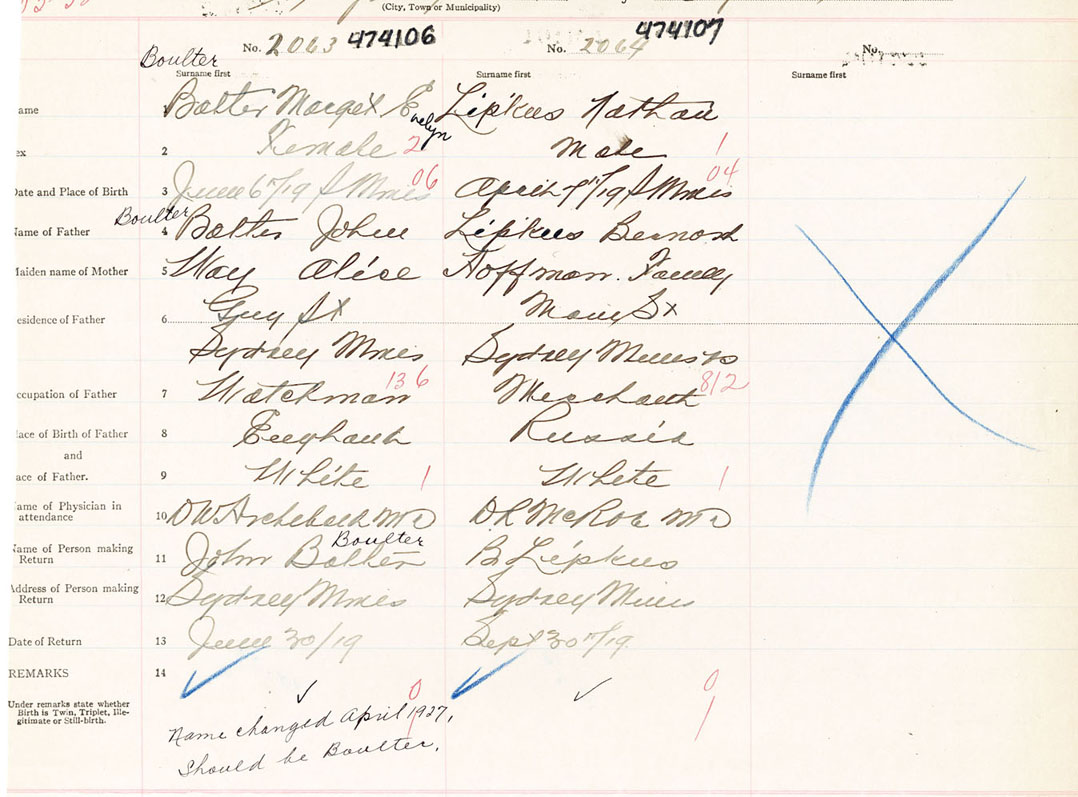 (City, Town or Municipality)
No. 2063 474106
No. 2064 474107
No.
Boulter
Surname first
Surname first
Surname first
ame
1 Bolter Margret Evelyn
Lipkus Nathan
ex
2 Female 2
Male 1
Date and Place of Birth
3 June 6"/19 S Mines 06
April 7"/19 S Mines 04
Boulter
Name of Father
4 Bolter John
Lipkus Bernard
Maiden name of Mother
5 Way Alice
Hoffman Fanny
esidence of Father
6 Guy St
Main St
Sydney Mines
Sydney Mines
ccupation of Father
7 Watchman 136
Merchant 812
lace of Birth of Father
8 England
Russia
and
ace of Father.
9 White 1
White 1
ame of Physician in
attendance
10 D W Archibald M D
D L McRae M D
Boulter
Name of Person making
Return
11 John Bolter
B Lipkus
Address of Person making
Return
12 Sydney Mines
Sydney Mines
Date of Return
13 June 30/19
Sept 30"/19
REMARKS
14
Under remarks state whether
Birth is Twin, Triplet, Ille-
gitimate or Still-birth.
0
0
1
Name changed April 1927,
Should be Boulter.